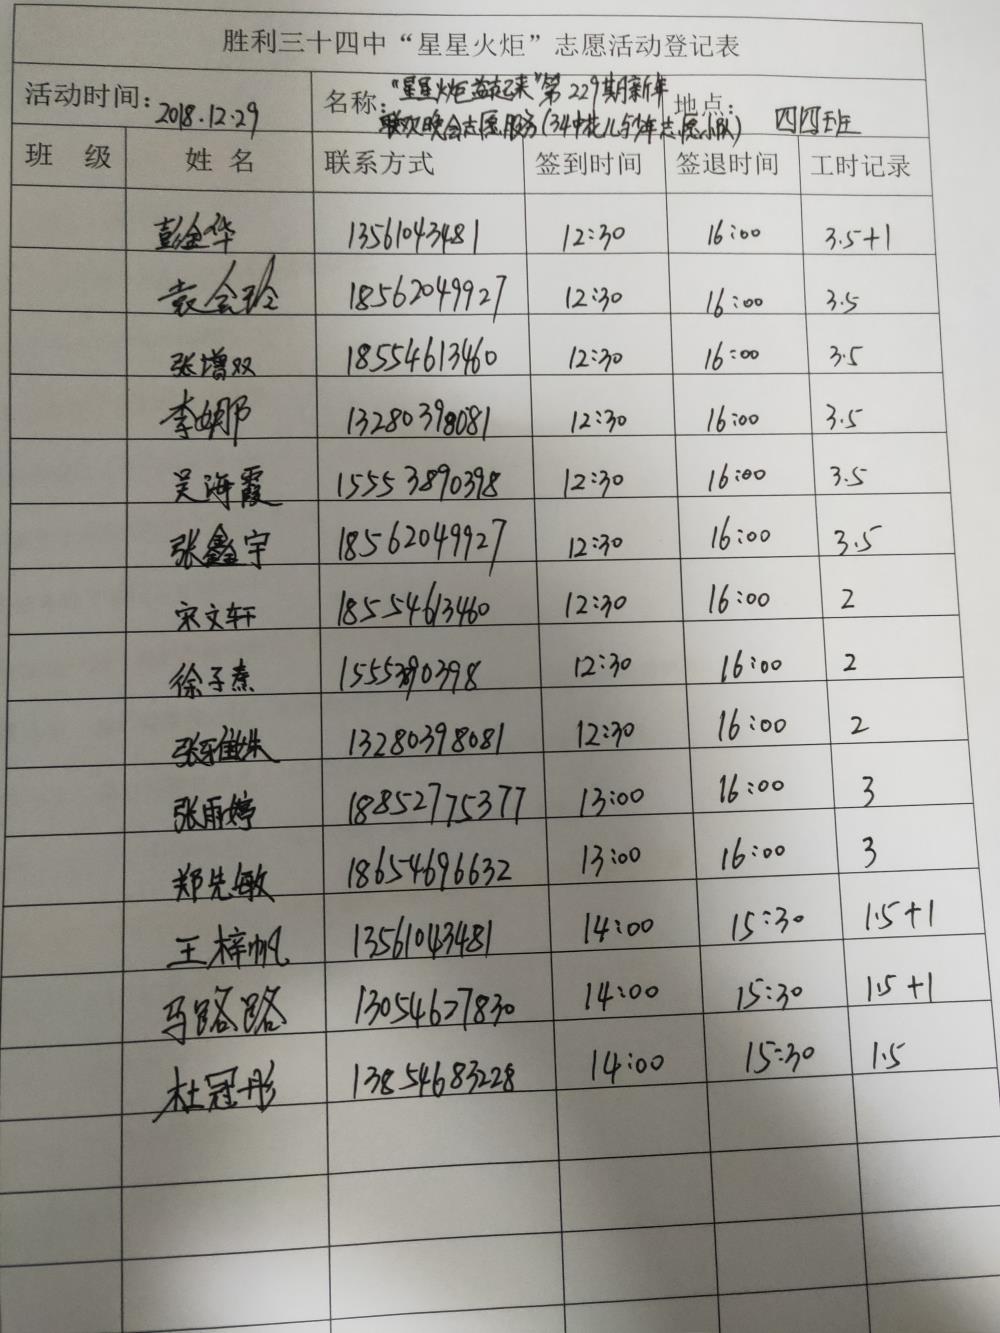 胜利三十四中“星星火炬”志愿活动登记表
活动时间：2018.12.29 名称：“星星火炬益起来”第229期新年 地点：四四班
联欢晚会志愿服务(34中花儿与少年志愿小队)
班 级 姓 名 联系方式 签到时间 签退时间 工时记录
彭金华 13561043481 12:30 16:00 3.5+1
袁会玲 18562049927 12:30 16:00 3.5
张增双 18554613460 12:30 16:00 3.5
李娜 13280398081 12:30 16:00 3.5
吴海霞 15553890398 12:30 16:00 3.5
张鑫宇 18562049927 12:30 16:00 3.5
宋文轩 18554613460 12:30 16:00 2
徐子熹 12:30 16:00 2
张雅姝 13280398081 12:30 16:00 2
张雨婷 18852775377 13:00 16:00 3
郑先敏 18654696632 13:00 16:00 3
王梓帆 13561043481 14:00 15:30 1.5+1
马路路 13054627830 14:00 15:30 1.5+1
杜冠彤 13854683228 14:00 15:30 1.5